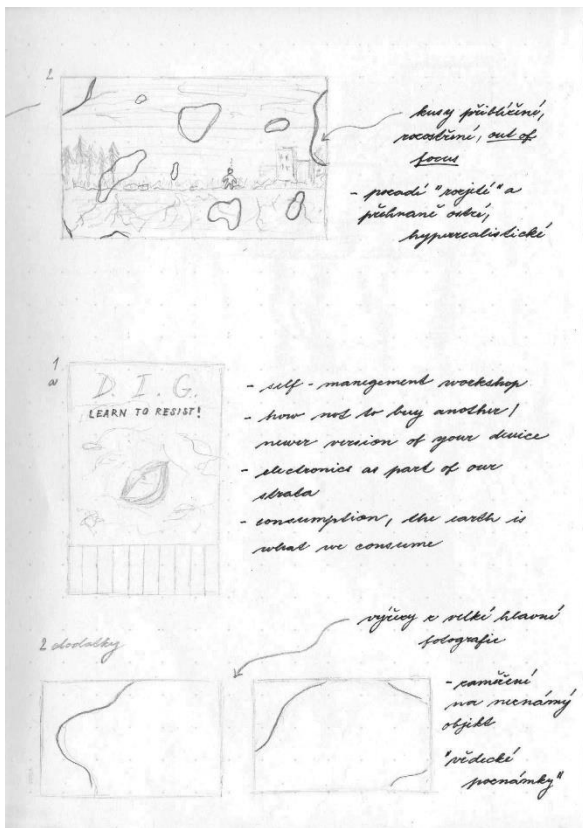 1
kusy přiblížené,
rozostření, out of
focus
- pozadí "rozjeté" a
přehnaně ostré,
hyperrealistické
1
a
D. I. G.
LEARN TO RESIST!
- self-management workshop
- how not to buy another/
newer version of your device
- electronics as part of our
strata
- consumption, the earth is
what we consume
2 dodatky
výřezy z velké hlavní
fotografie
- zaměření
na neznámý
objekt
"vědecké
poznámky"